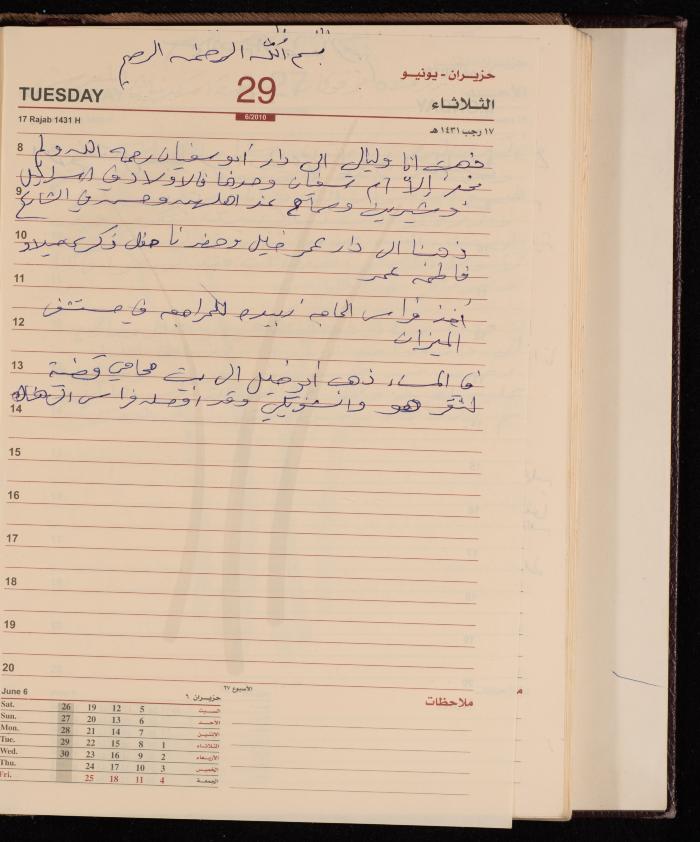 بسم الله الرحمن الرحيم
حزيران - يونيو
TUESDAY 29 الثلاثاء
6/2010
17 Rajab 1431 H
١٧ رجب ١٤٣١ هـ
8 ذهبت انا وليالي الى دار أبو سفيان رحمه الله ولم
نجد إلا أم سفيان وحدها فالأولاد في
9 وشيرين وسماح عند اهلهم في الشارع
10 ذهبنا الى دار عمر خليل وحضرنا حفل ذكرى ميلاد
فاطمة عمر
11
أخذ فراس الحاجه زبيده للمراجعه في مستشفى
12
الميزان
13 في المساء ذهب أبو خليل الى بيت محامي
هو وقد أوصله فراس
14
15
16
17
18
19
20
June 6 حزيران ٦
الأسبوع ٢٧
ملاحظات
Sat. 26 19 12 5 السبت
Sun. 27 20 13 6 الأحد
Mon. 28 21 14 7 الاثنين
Tue. 29 22 15 8 1 الثلاثاء
Wed. 30 23 16 9 2 الأربعاء
Thu. 24 17 10 3 الخميس
Fri. 25 18 11 4 الجمعة